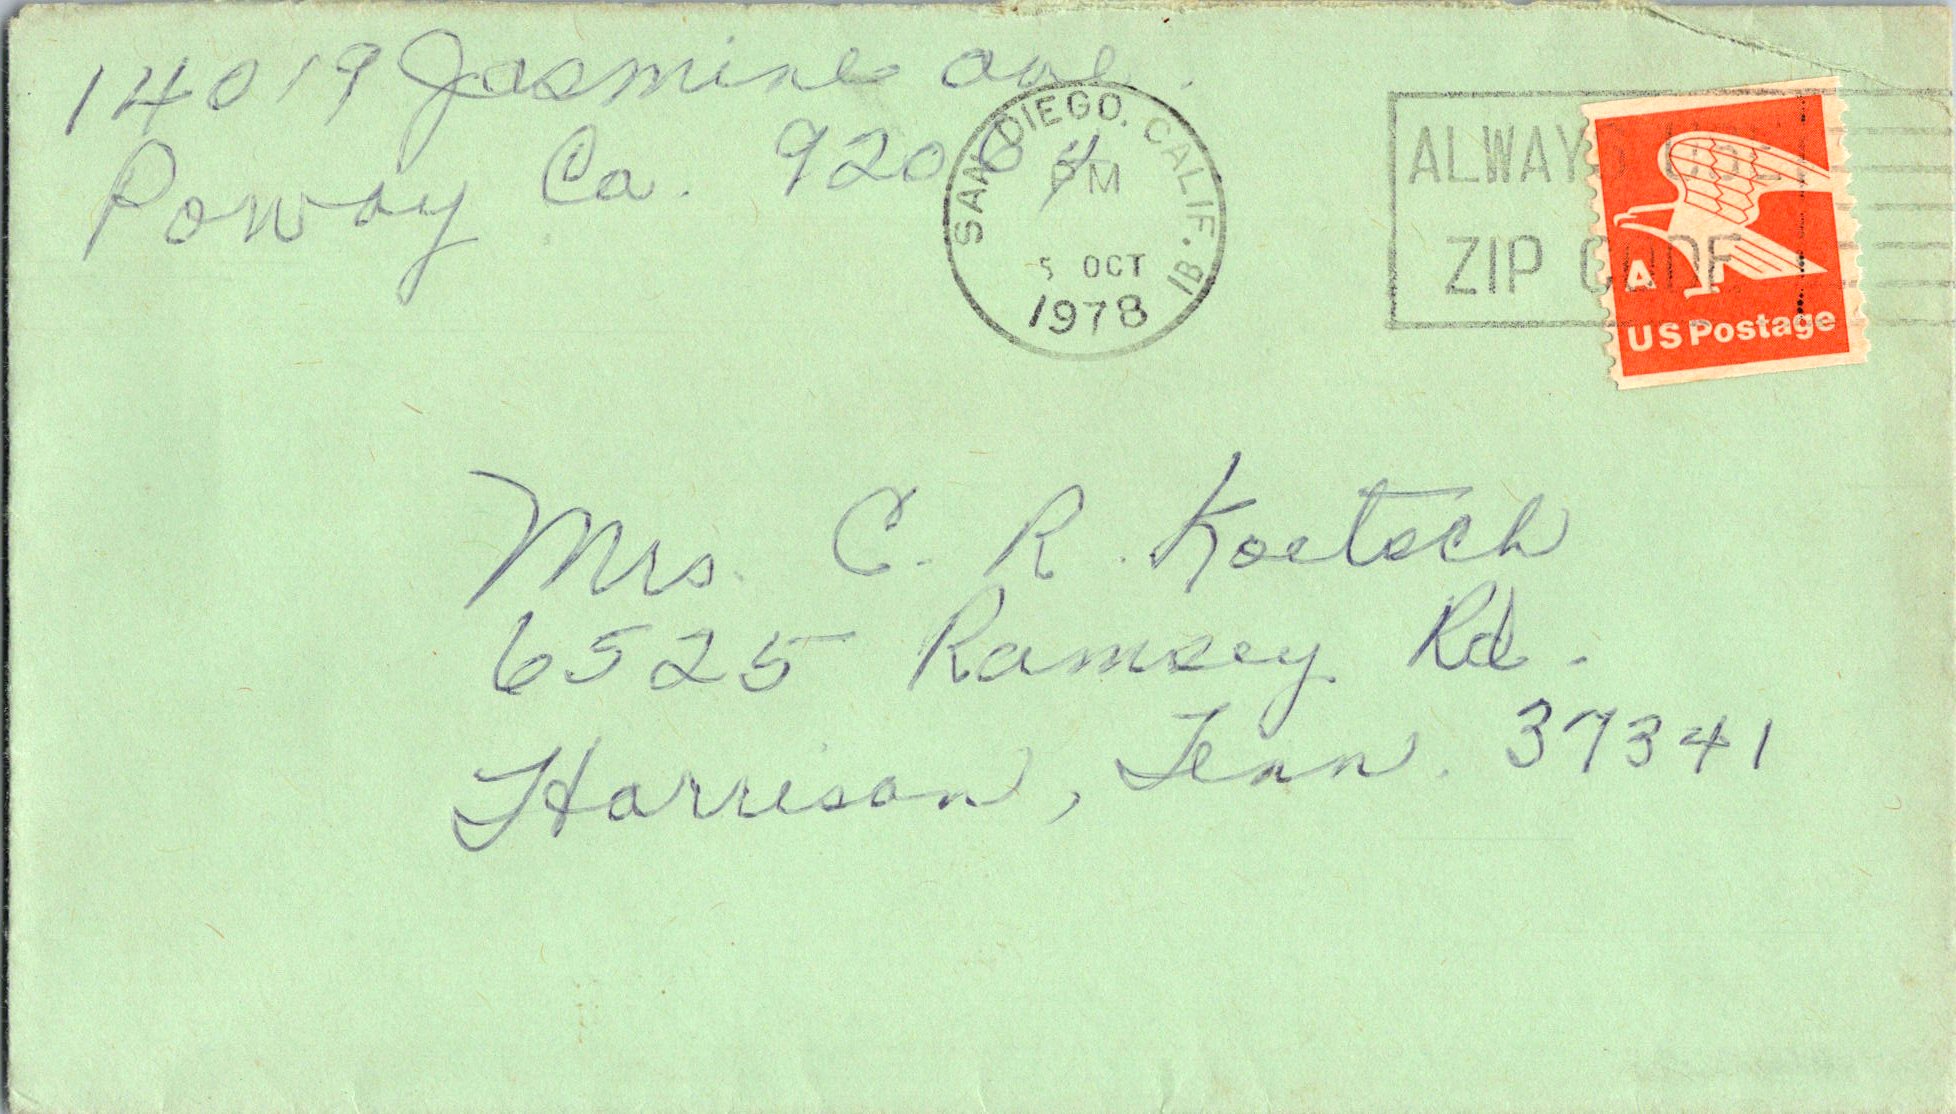 14019 Jasmine ave.
Poway Ca. 92064
SAN DIEGO, CALIF. 
PM
5 OCT
1978
ALWAYS USE
ZIP CODE
A
US Postage
Mrs. C. R. Koetsch
6525 Ramsey Rd.
Harrison, Tenn. 37341